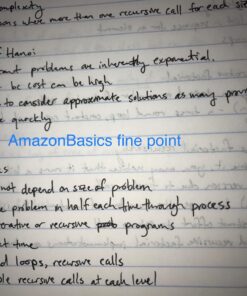 mplexity
ons where more than one recursive call for each size
f Hanoi
ant problems are inherently exponential.
be cost can be high
to consider approximate solutions as may prov
e quickly
AmazonBasics fine point
s
not depend on size of problem
e problem in half each time through process
erative or recursive programs
t time
d loops, recursive calls
ple recursive calls at each level